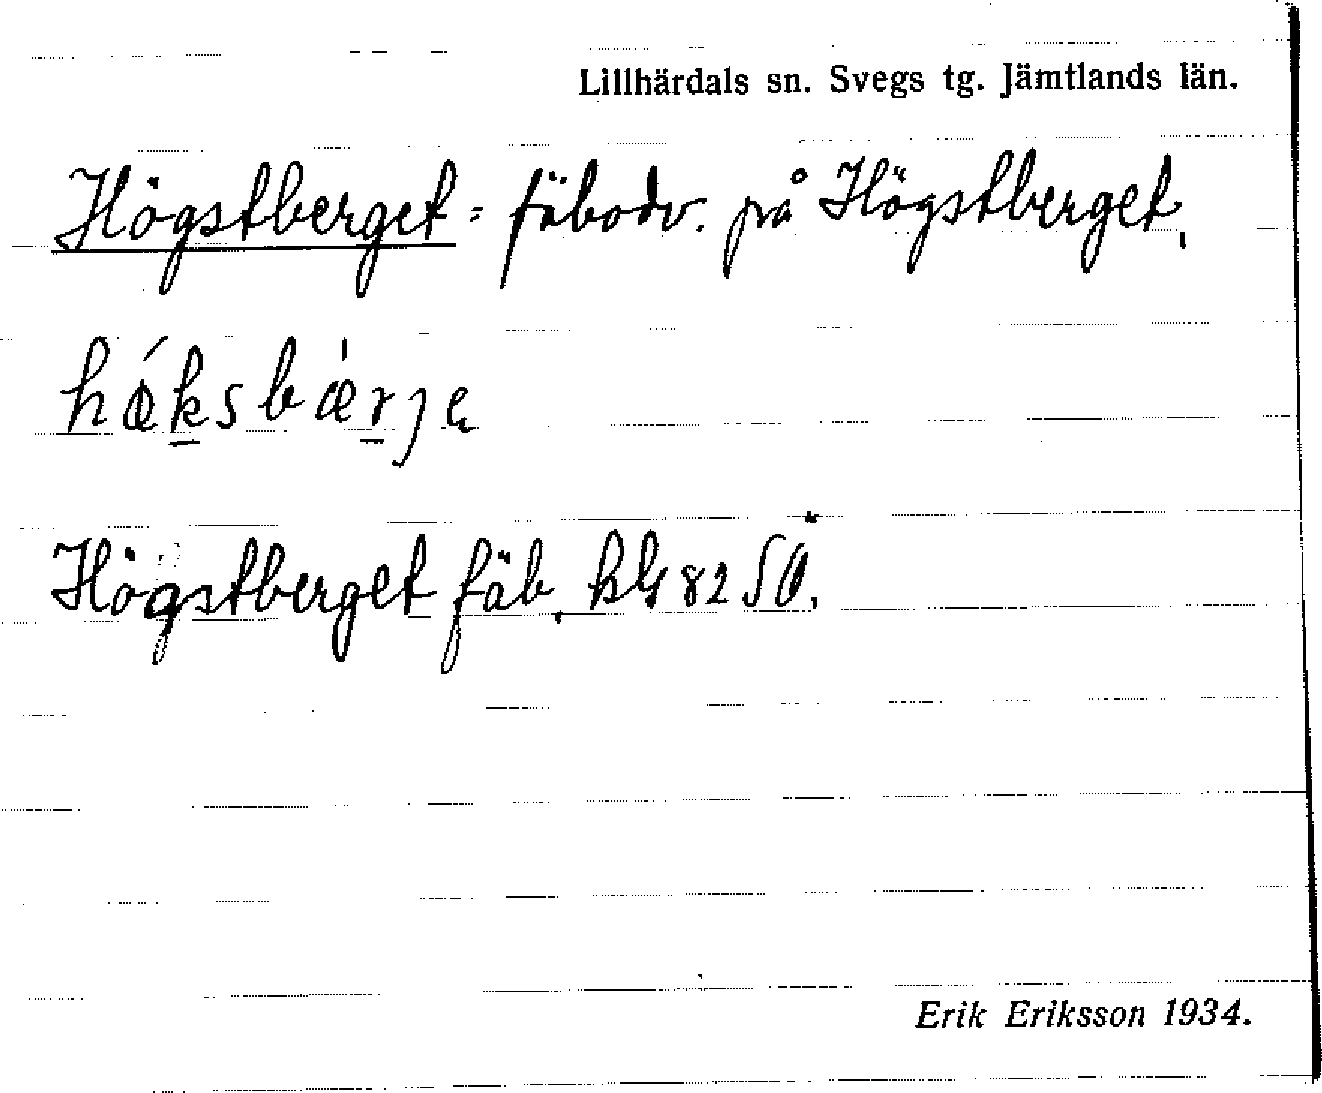 Lillhärdals sn. Svegs tg. Jämtlands län.
Högstberget = fäbodv. på Högstberget.
hǿksbæ̀rje
Högstberget fäb. kbl 82 SÖ.
Erik Eriksson 1934.